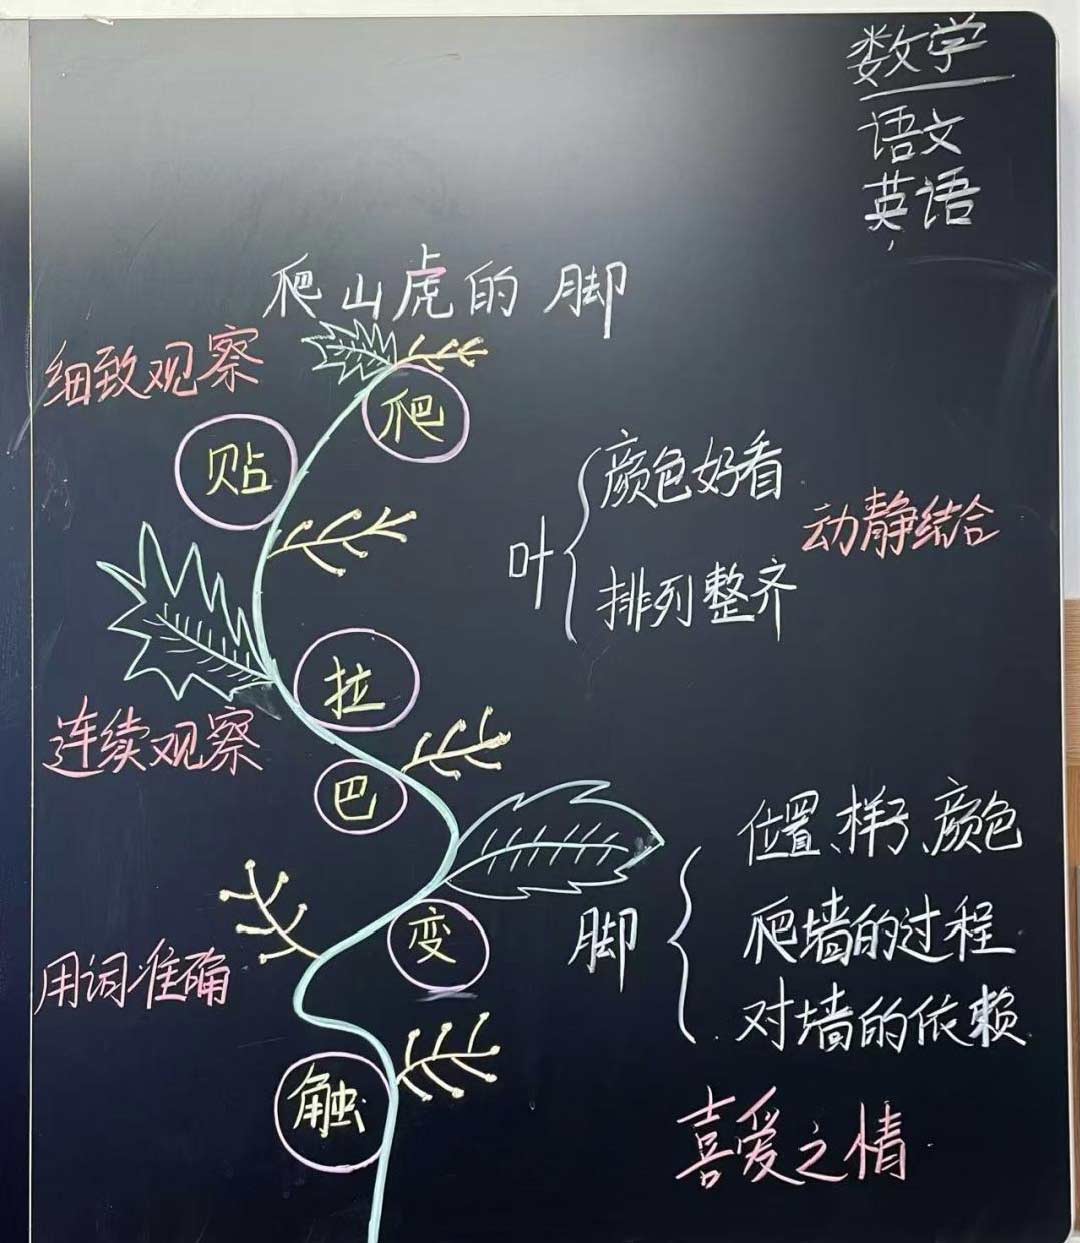 数学
语文
英语
爬山虎的脚
细致观察
爬
贴
叶
颜色好看
排列整齐
动静结合
拉
连续观察
巴
变
用词准确
触
脚
位置、样子、颜色
爬墙的过程
对墙的依赖
喜爱之情